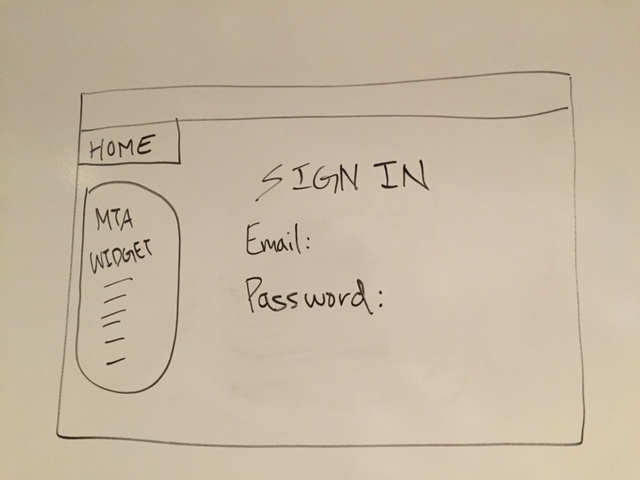 HOME
MTA
WIDGET
SIGN IN
Email:
Password: